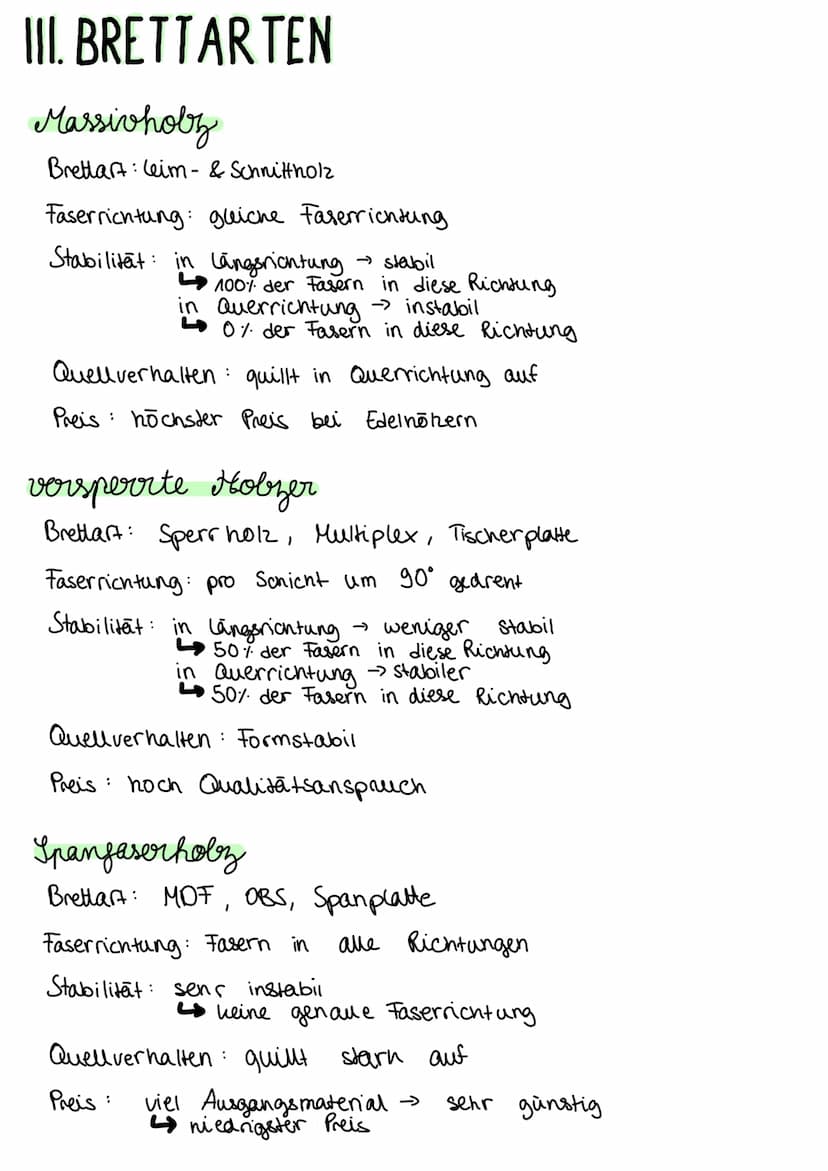 III. BRETTARTEN
Massivholz
Brettart: Leim- & Schnittholz
Faserrichtung: gleiche Faserrichtung
Stabilität: in Längsrichtung → stabil
↳ 100% der Fasern in diese Richtung
in Querrichtung → instabil
↳ 0% der Fasern in diese Richtung
Quellverhalten: quillt in Querrichtung auf
Preis: höchster Preis bei Edelhölzern
versperrte Holzer
Brettart: Sperrholz, Multiplex, Tischerplatte
Faserrichtung: pro Schicht um 90° gedreht
Stabilität: in Längsrichtung → weniger stabil
↳ 50% der Fasern in diese Richtung
in Querrichtung → stabiler
↳ 50% der Fasern in diese Richtung
Quellverhalten: Formstabil
Preis: hoch Qualitätsanspauch
Spanfaserholz
Brettart: MDF, OBS, Spanplatte
Faserrichtung: Fasern in alle Richtungen
Stabilität: sehr instabil
↳ keine genaue Faserrichtung
Quellverhalten: quillt stark auf
Preis: viel Ausgangsmaterial → sehr günstig
↳ niedrigster Preis